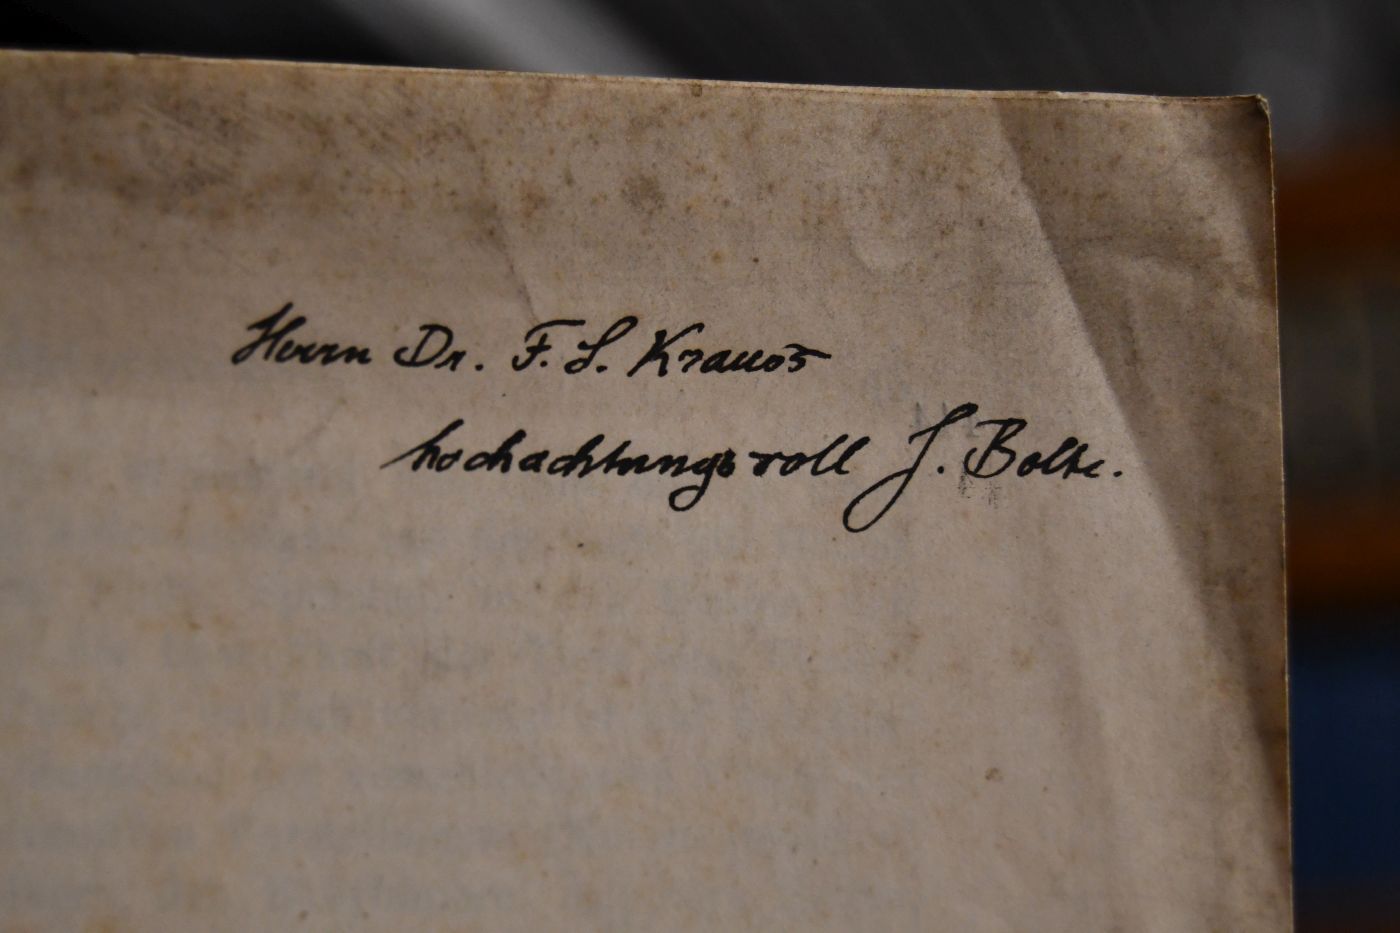 Herrn Dr. F. S. Krauss
hochachtungsvoll J. Bolte.